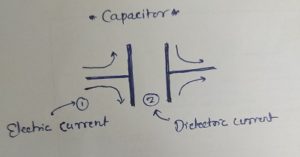 * Capacitor *
①
②
Electric current
Dielectric current